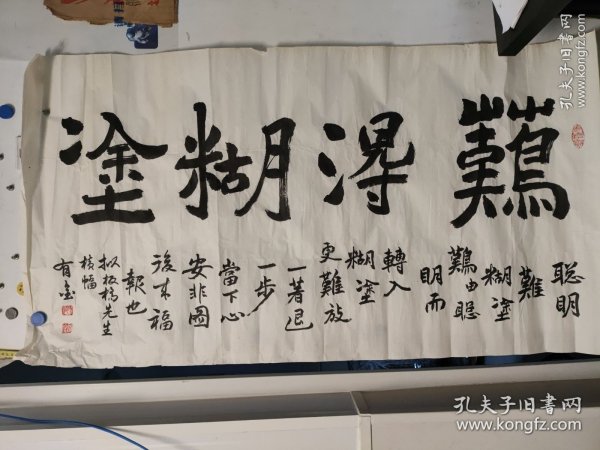 難得糊塗
聰明
難
糊塗
難由聰
明而
轉入
糊塗
更難放
一著退
一步
當下心
安非圖
後來福
報也
板橋先生
橫幅
孔夫子旧书网
www.kongfz.com
孔夫子旧书网
www.kongfz.com